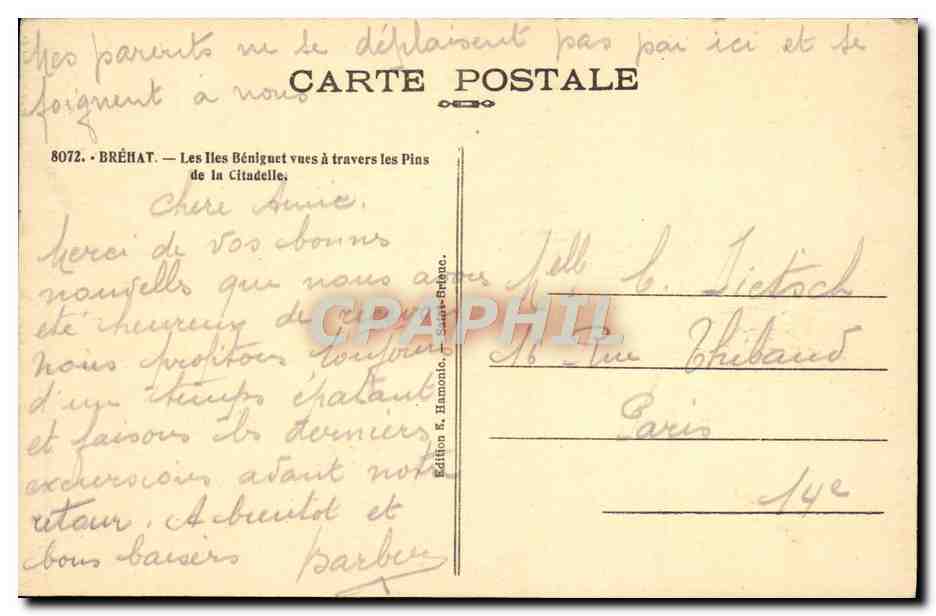 Mes parents ne se déplaisent pas par ici et se
joignent à nous
CARTE POSTALE
8072. - BRÉHAT. — Les Iles Béniguet vues à travers les Pins
de la Citadelle.
Chère Amie,
Merci de vos bonnes
nouvelles que nous avons
été heureux de
Nous profitons toujours
d'un temps épatant
et faisons les derniers
excursions avant notre
retour. A bientot et
bons baisers
Edition E. Hamonic. — Saint-Brieuc.
CPAPHIL
Melle C. Dietsch
16 Rue Thibaud
Paris
14e